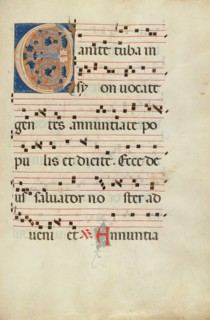 Canite tuba in
sy on vocate
gen tes annuntiate po
pu lis et dicite. Ecce de
us salvator no ster ad
veni et. V. Annuntia